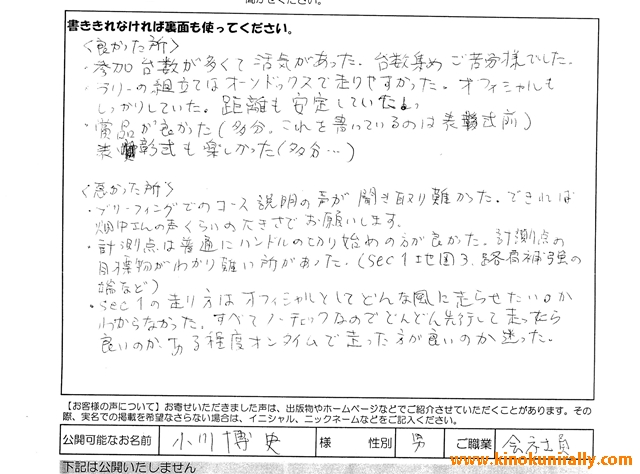 聞かせください。
書ききれなければ裏面も使ってください。
＜良かった所＞
・参加台数が多くて活気があった。台数集めご苦労様でした。
・ラリーの組立てはオーソドックスで走りやすかった。オフィシャルも
しっかりしていた。距離も安定していた。
・賞品が良かった(多分。これを書いているのは表彰式前)
表彰式も楽しかった(多分…)
＜悪かった所＞
・ブリーフィングでのコース説明の声が聞き取り難かった。できれば
畑中さんの声くらいの大きさでお願いします。
・計測点は普通にハンドルの切り始めの方が良かった。計測点の
目標物がわかり難い所があった。(sec1地図3.路肩補強の
端など)
・sec1の走り方はオフィシャルとしてどんな風に走らせたいのか
わからなかった。すべてノーチェックなのでどんどん先行して走ったら
良いのか、ある程度オンタイムで走った方が良いのか迷った。
【お客様の声について】お寄せいただきました声は、出版物やホームページなどでご紹介させていただくことがあります。その
際、実名での掲載を希望なさらない場合は、イニシャル、ニックネームなどをご記入ください。
公開可能なお名前 小川博史 様 性別 男 ご職業 会社員
下記は公開いたしません
www.kinokunirally.com